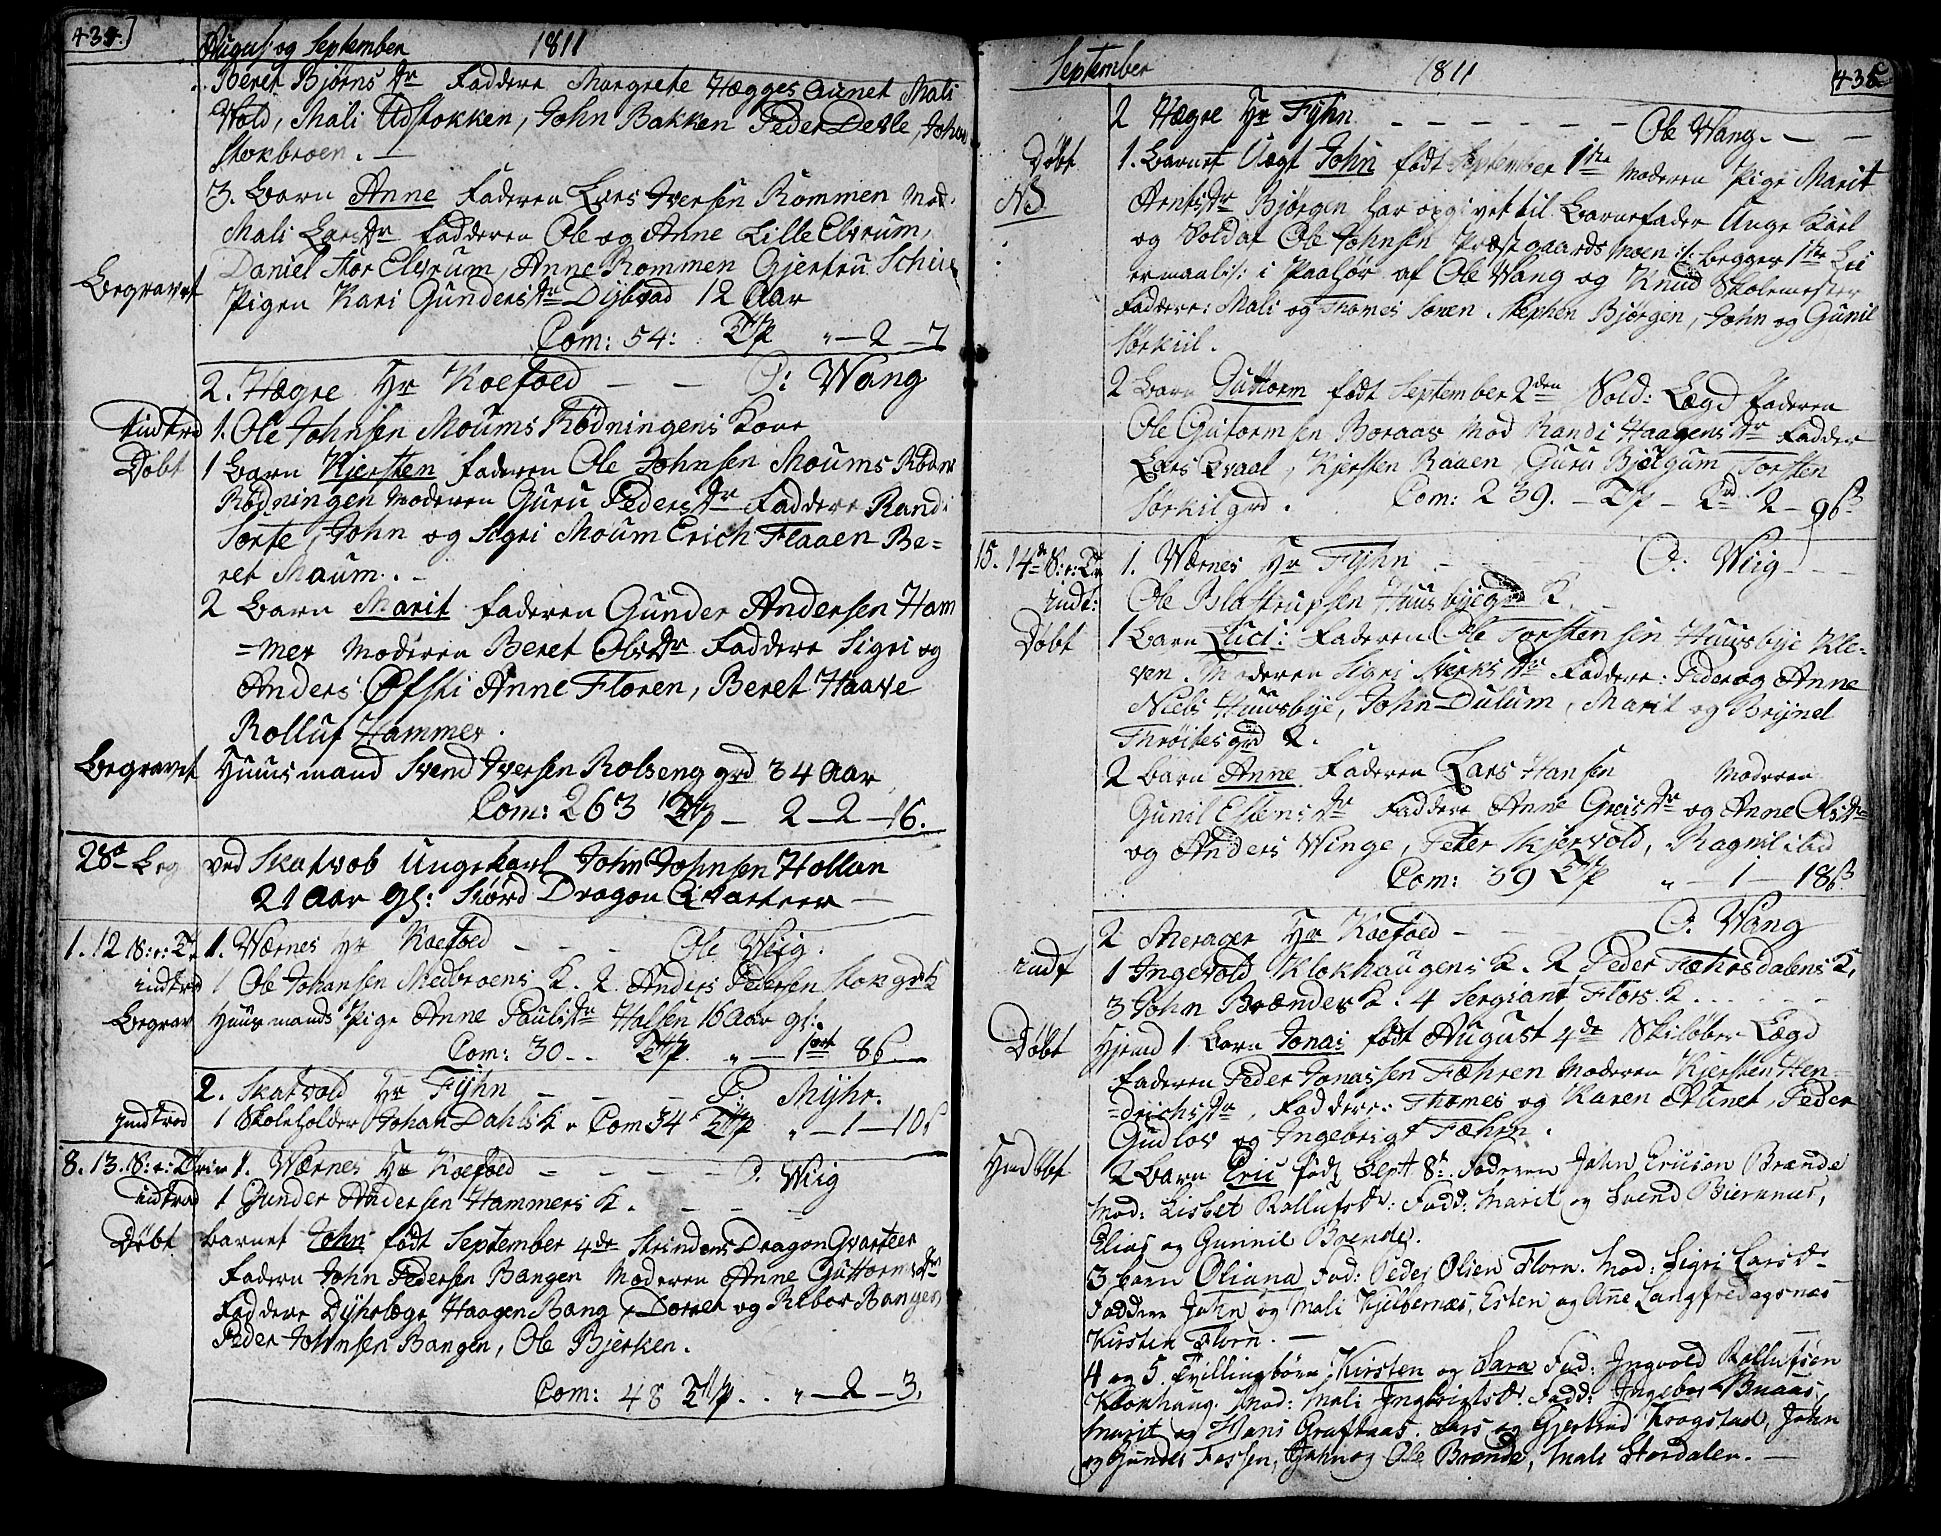 434.
August og September 1811
Beret Bjørns dr Faddere Margrete Hægges Aunet Mali
Vold, Mali Udstokken, John Bakken Peder Delle, Johan
Stokbroen. —
3. Barn Anne Faderen Lars Iversen Rommen Mod:
Mali Lars dr Fadderen Ole og Anne Lille Elvrum,
Daniel Stor Elvrum, Anne Rommen Gjertru
Begravet Pigen Kari Gunders dr Dybvad 12 Aar
Com: 54: T/p " — 2 — 7
2. Hægre Hr Koefoed — — O: Wang
Indtrd 1. Ole Johnsen Moums Rødningens Kone
Døbt 1 Barn Kjersten Faderen Ole Johnsen Moums
Rødningen Moderen Guru Peders dr Faddere Randi
Sorte, John og Sigri Moum Erich Flaaen Be=
ret Moum. -
2 Barn Marit Faderen Gunder Andersen Ham
=mer Moderen Beret Ols dr Faddere Sigri og
Anders Øfsti Anne Floren, Beret Haave
Rolluf Hammer.
Begravet Huusmand Svend Iversen Rolseng grd 34 Aar
Com: 263 T/p — 2 — 2 — 16.
28de Beg ved Skatvold Ungekarl John Johnsen Hollan
21 Aar gl: Størd Dragon Qvarteer —
1. 12 S: e: Tr 1. Wærnes Hr Koefoed — — — Ole Wiig.
indtred 1 Ole Johansen Medbroens K. 2. Anders Pedersen Stokgrd K
Begrav Huusmands Pige Anne Pauls dr Halsen 16 Aar gl:
Com: 30 — . . T/p. " — 1 ort 8 ß
2. Skatvold Hr Fyhn — — — P: Myhr.
Indtred 1 Skoleholder Johan Dahls K. Com 34 T/p " — 1 — 10 ß
8. 13. S: e: Trin 1. Wærnes Hr Koefoed — — — — O. Wiig
indtred 1 Gunder Andersen Hammers K. — — —
Døbt Barnet John født September 4de Strindens Dragon Qvarteer
Fadern John Pedersen Bangen Moderen Anne Guttorms dr
Faddere Dyhrlæge Haagen Bang, Dorret og Rebor Bangen
Peder Johnsen Bangen, Ole Bjerken.
Com: 48 T/p. . " — 2 — 3.
September 1811 435
2 Hægre Hr Fyhn — — — — — Ole Wang. —
Døbt 1. Barnet Uægt John født September 1ste Moderen Pige Marit
NB Arnts dr Bjørgen har opgivet til Barnefader Unge Karl
og Soldat Ole Johnsen Præstgaards Moen :/: begges 1ste Lei
ermaal :/: i Paahør af Ole Wang og Knud Skolemester
Faddere: Mali og Thomes Sonen. Stephen Bjørgen, John og Gunil
Størkiil.
2 Barn Guttorm født September 2den Sold: Lægd Faderen
Ole Gutormsen Boraas Mod Randi Haagens dr Fadder
Lars Qvaal, Kjersten Raaen, Guru Bjelgum, Torsten
Størkil grd. Com: 239. — T/p — 2 — 9 ß
15. 14de S: e: Tr 1. Wærnes Hr Fyhn — — — O: Wiig — —
indt: Ole Blastrupsen Huusbyegrd K. —
Døbt 1 Barn Luci: Faderen Ole Torstensen Huusbye Kle=
ven. Moderen Sigri Sverks dr Faddere: Peder og Anne
Niels Huusbye, John Dulum, Marit og Brynel
Thrøites grd 2.
2 Barn Anne Faderen Lars Hansen Moderen
Gunil Estens dr Faddere Anne Greis dr og Anne Ols dr
og Anders Winge, Peter Skjervold, Ragnil ibid
Com: 39 T/p " — 1 — 18 ß
2 Merager Hr Koefoed — — — O: Wang
indt 1 Ingevold Klokhaugens K. 2 Peder Fæhrsdalens K,
3 John Brændes K. 4 Sergiant Flors K. . . . . —
Døbt Hjemd 1 Barn Jonas født August 4de Skiløber Lægd
Faderen Peder Jonassen Fæhren Moderen Kjersten Hen=
=drichs dr, Faddere: Thomes og Karen Aunet, Peder
Gudlov og Ingebrigt Fæhrn.
Hmdøbt 2 Barn Eric født Sept 8de. Faderen John Ericsen Brænde
Mod: Lisbet Rollufsdr: Fadd: Marit og Svend Biernnæs,
Elias og Gunnil Brende.
3 barn Oliana Fad: Peder Olsen Florn. Mod: Sigri Larsdr
Faddere John og Mali Kjelbernæs, Esten og Añe Langfredagsnæs
Kirsten Florn. —
4 og 5. Tvillingbørn Kirsten og Sara Fad: Ingvold Rollufsen
Klokhaug. Mod: Mali Ingbrigtsdr. Fadd: Ingebor Bnaas,
Marit og Hans Grøftnæs. Lars og Gjertrud Krogstad, John
og Gunder Fossen, John og Ole Brende, Mali Stordalen. —